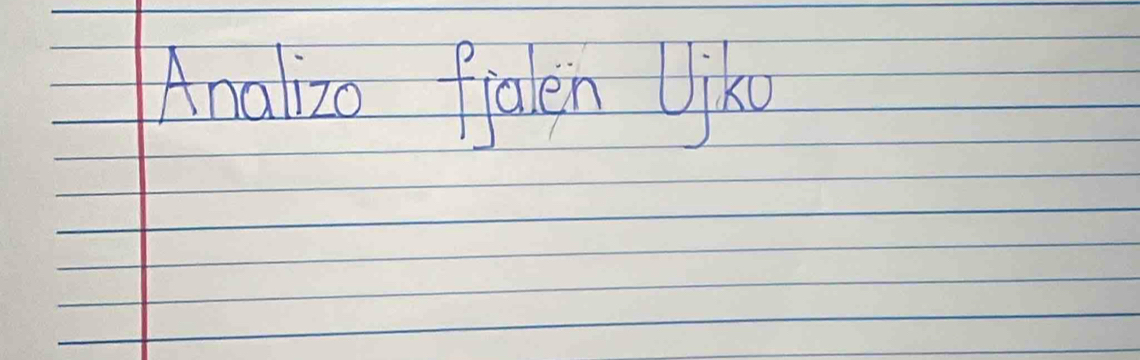 Analizo fjalën Ujko